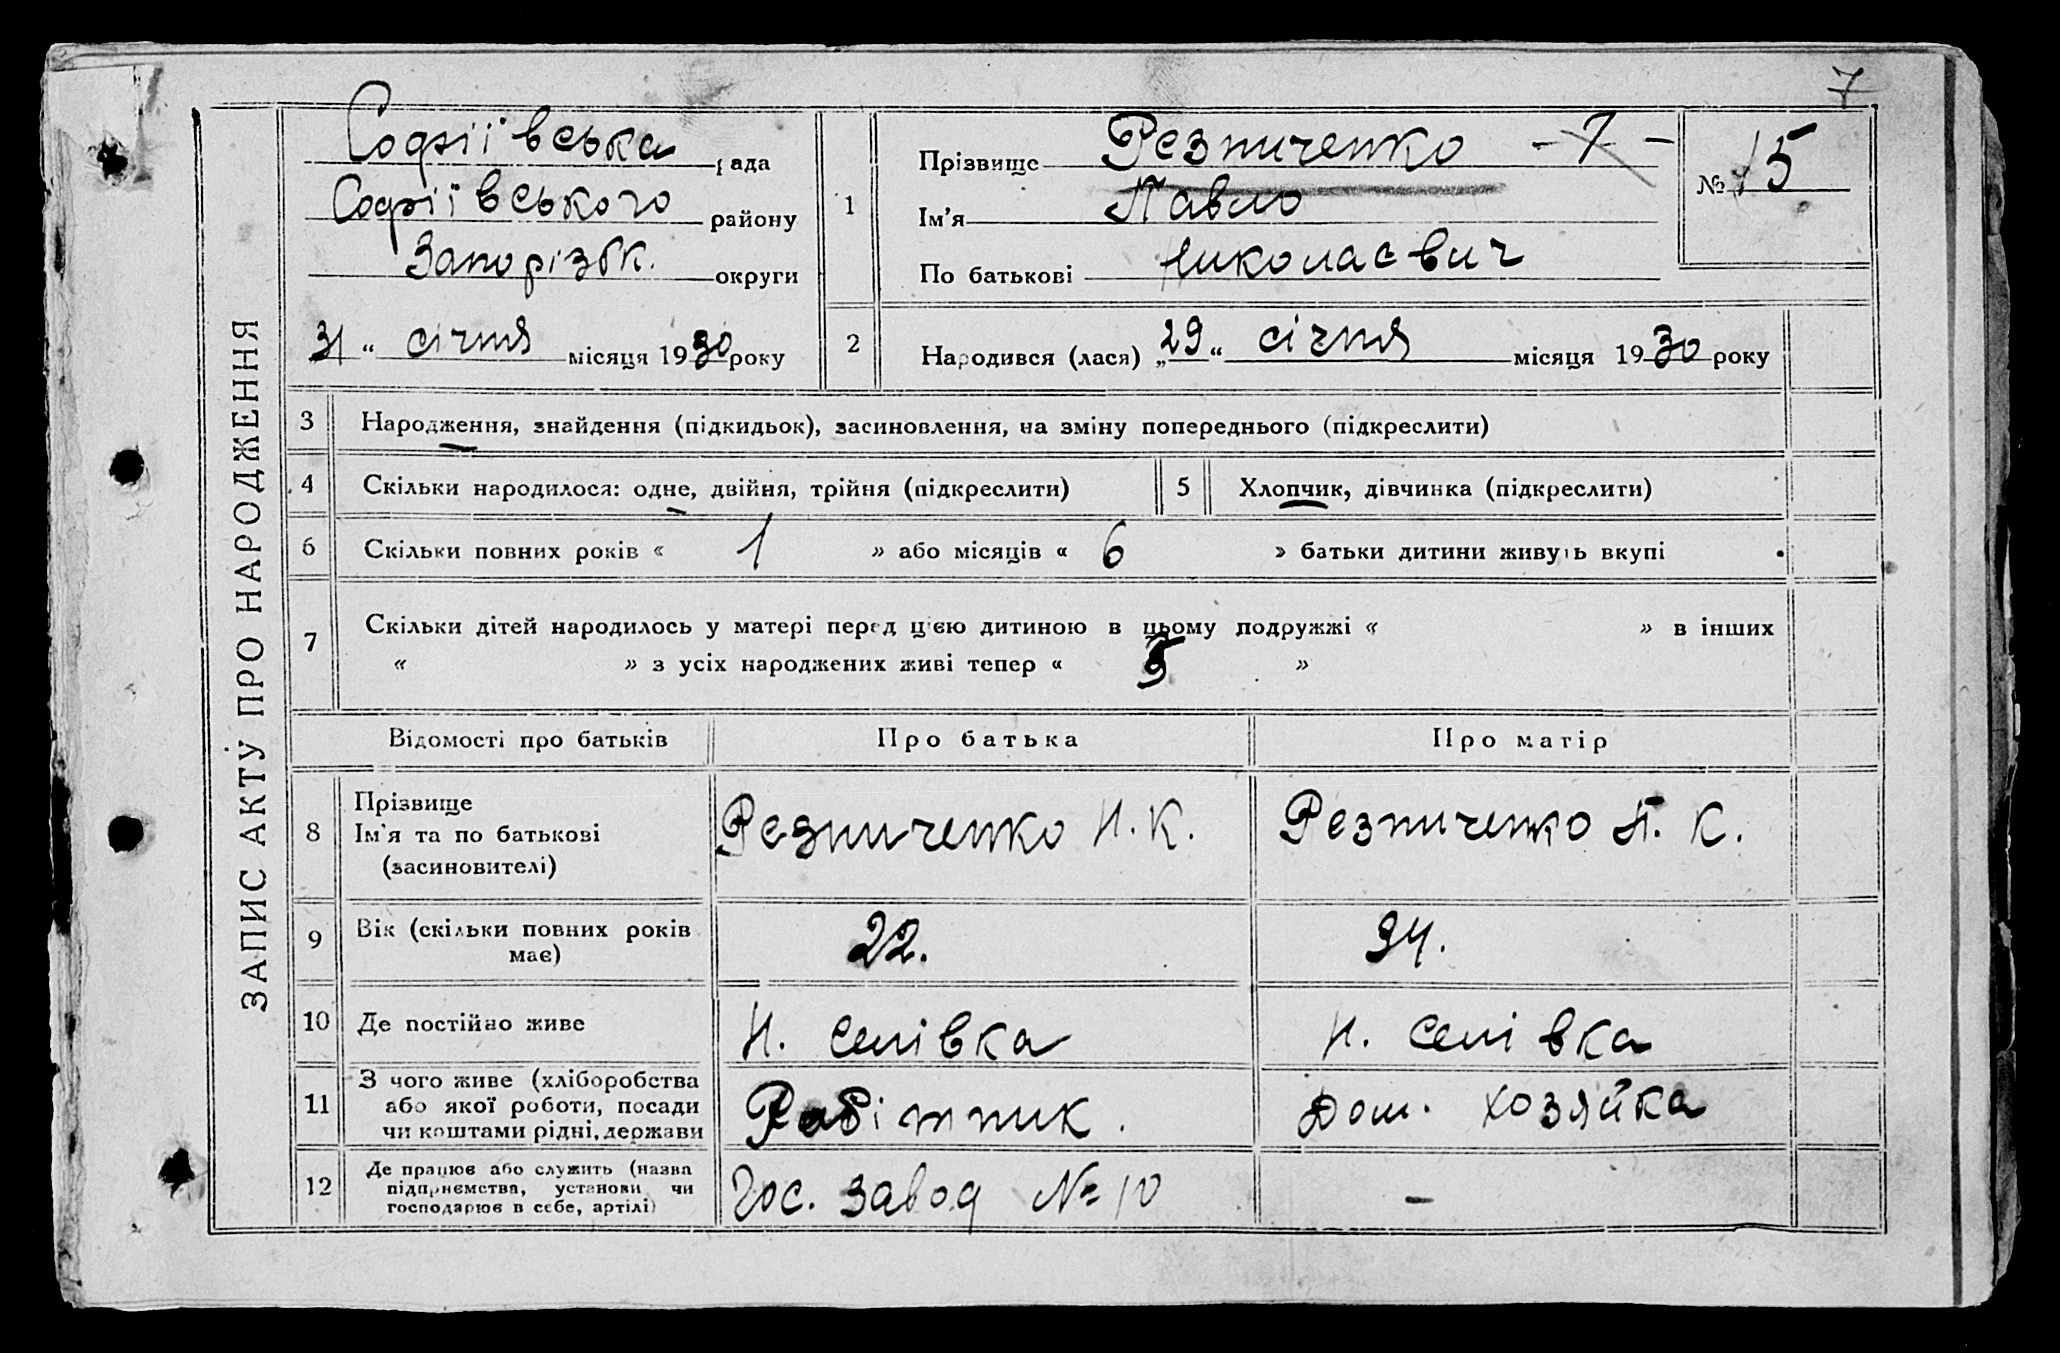 7
ЗАПИС АКТУ ПРО НАРОДЖЕННЯ
Софіївська рада
Софіївського району
Запорізьк. округи
31 “ січня місяця 1930 року
1
Прізвище Резниченко - 7 -
Ім’я Павло
По батькові Николаєвич
№ 15
2
Народився (лася) „29“ січня місяця 1930 року
3 Народження, знайдення (підкидьок), засиновлення, на зміну попереднього (підкреслити)
4 Скільки народилося: одне, двійня, трійня (підкреслити)
5 Хлопчик, дівчинка (підкреслити)
6 Скільки повних років « 1 » або місяців « 6 » батьки дитини живуть вкупі
7 Скільки дітей народилось у матері перед цією дитиною в цьому подружжі « » в інших
« » з усіх народжених живі тепер « »
Відомості про батьків Про батька Про матір
8 Прізвище
Ім’я та по батькові
(засиновителі)
Резниченко Н. К. Резниченко П. К.
9 Вік (скільки повних років
має)
22. 24.
10 Де постійно живе Н. Селівка Н. Селівка
11 З чого живе (хліборобства
або якої роботи, посади
чи коштами рідні, держави
Робітник. Дом. хозяйка
12 Де працює або служить (назва
підприємства, установи чи
господарює в себе, артілі)
Гос. завод № 10 -